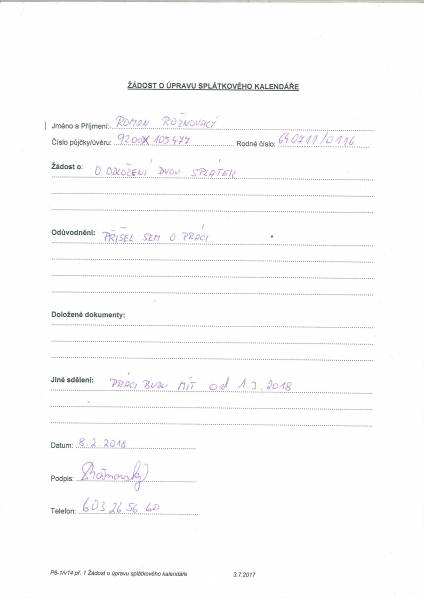 ŽÁDOST O ÚPRAVU SPLÁTKOVÉHO KALENDÁŘE
Jméno a Příjmení: ROMAN RŮŽNOVACÍ
Číslo půjčky/úvěru: 9200X105477 Rodné číslo: 640711/0116
Žádost o: O ODLOŽENÍ DVOU SPLÁTEK
Odůvodnění: PŘIŠEL SEM O PRÁCI
Doložené dokumenty:
Jiné sdělení: PRÁCI BUDU MÍT od 1.3.2018
Datum: 8.2.2018
Podpis:
Telefon: 603 26 56 60
P6-1/v14 př. 1 Žádost o úpravu splátkového kalendáře 3.7.2017